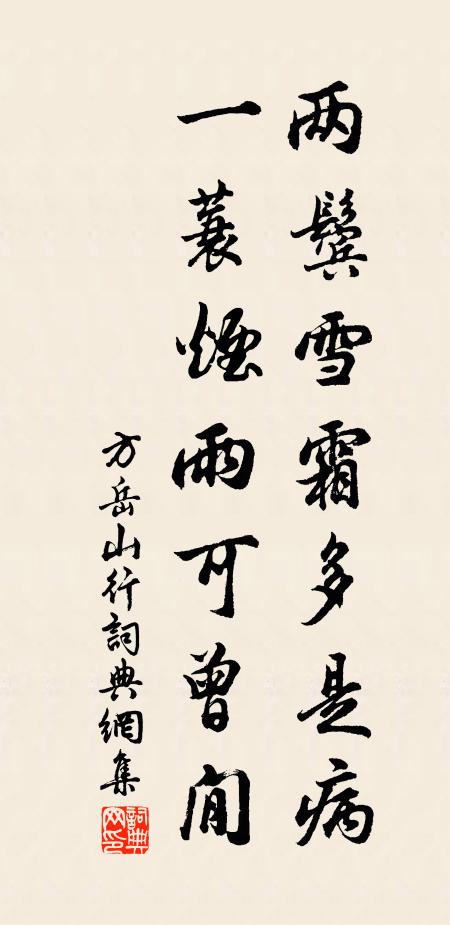 两鬓雪霜多是病
一蓑煙雨可曾閒
方岳山行詞典網集
詞典網印